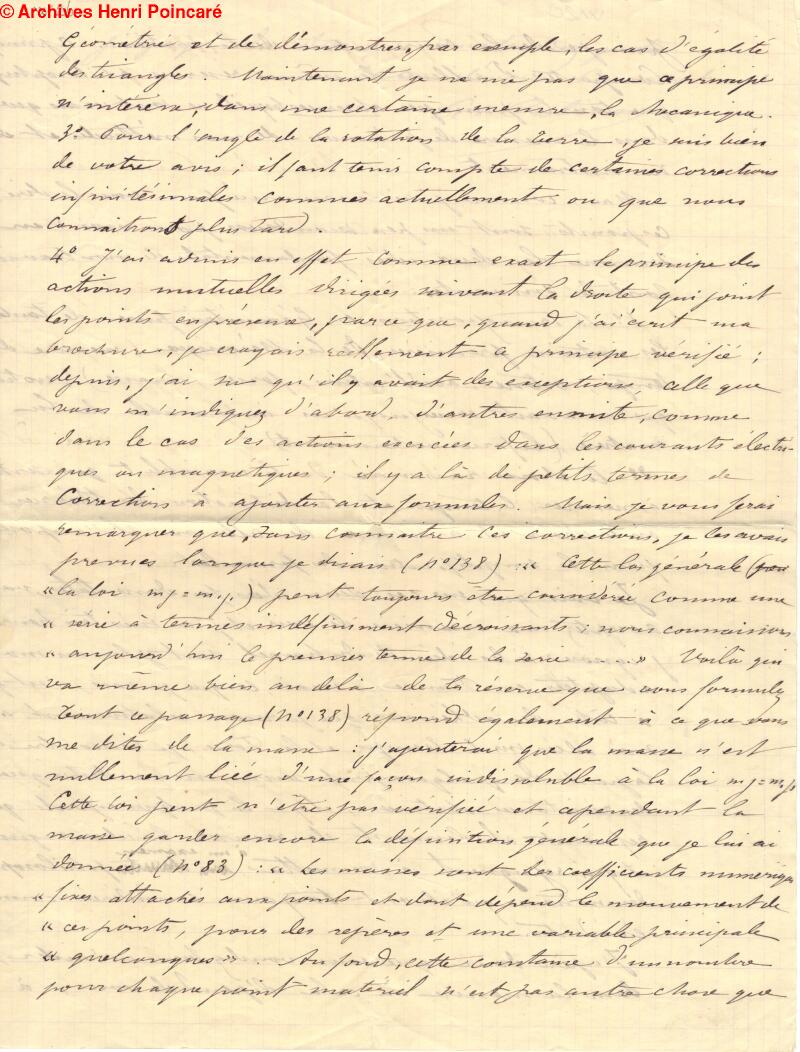 © Archives Henri Poincaré
Géométrie et de démontrer, par exemple, les cas d'égalité
des triangles. Maintenant je ne nie pas que ce principe
n'intéresse, dans une certaine mesure, la Mécanique.
3° Pour l'angle de la rotation de la Terre, je suis bien
de votre avis ; il faut tenir compte de certaines corrections
infinitésimales connues actuellement ou que nous
connaîtrons plus tard.
4° J'ai admis en effet comme exact le principe des
actions mutuelles dirigées suivant la droite qui joint
les points en présence, parce que, quand j'ai écrit ma
brochure, je croyais réellement ce principe vérifié ;
depuis, j'ai su qu'il y avait des exceptions, celle que
vous m'indiquez d'abord, d'autres ensuite, comme
dans le cas des actions exercées dans les courants électri-
ques ou magnétiques ; il y a là de petits termes de
correction à ajouter aux formules. Mais je vous ferai
remarquer que, sans connaître ces corrections, je les avais
prévues lorsque je disais (n° 138) : « Cette loi générale
« la loi mj = m,j,) peut toujours être considérée comme une
« série à termes indéfiniment décroissants ; nous connaissons
« aujourd'hui le premier terme de la série ..... » Voilà qui
va même bien au delà de la réserve que vous formulez
Tout ce passage (n° 138) répond également à ce que vous
me dites de la masse : j'ajouterai que la masse n'est
nullement liée d'une façon indissoluble à la loi mj = m,j,
Cette loi peut n'être pas vérifiée et cependant la
masse garder encore la définition générale que je lui ai
donnée (n° 83) : « Les masses sont des coefficients numériques
« fixes attachés aux points et dont dépend le mouvement de
« ces points, pour des repères et une variable principale
« quelconques ». Au fond, cette constance d'un nombre
pour chaque point matériel n'est pas autre chose que